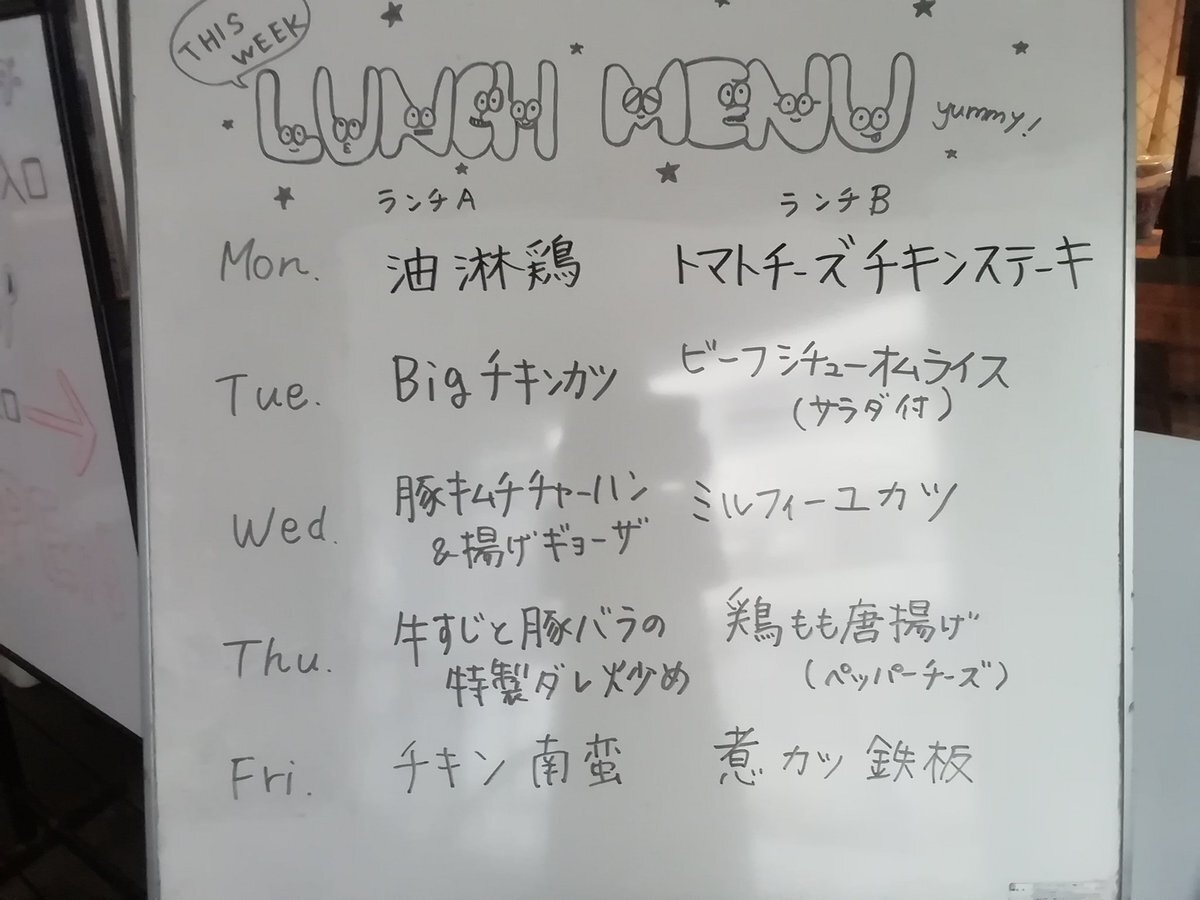 THIS
WEEK
LUNCH MENU
yummy!
ランチA ランチB
Mon. 油淋鶏 トマトチーズチキンステーキ
Tue. Bigチキンカツ ビーフシチューオムライス
(サラダ付)
Wed. 豚キムチチャーハン ミルフィーユカツ
&揚げギョーザ
Thu. 牛すじと豚バラの 鶏もも唐揚げ
特製ダレ炒め (ペッパーチーズ)
Fri. チキン南蛮 煮カツ鉄板